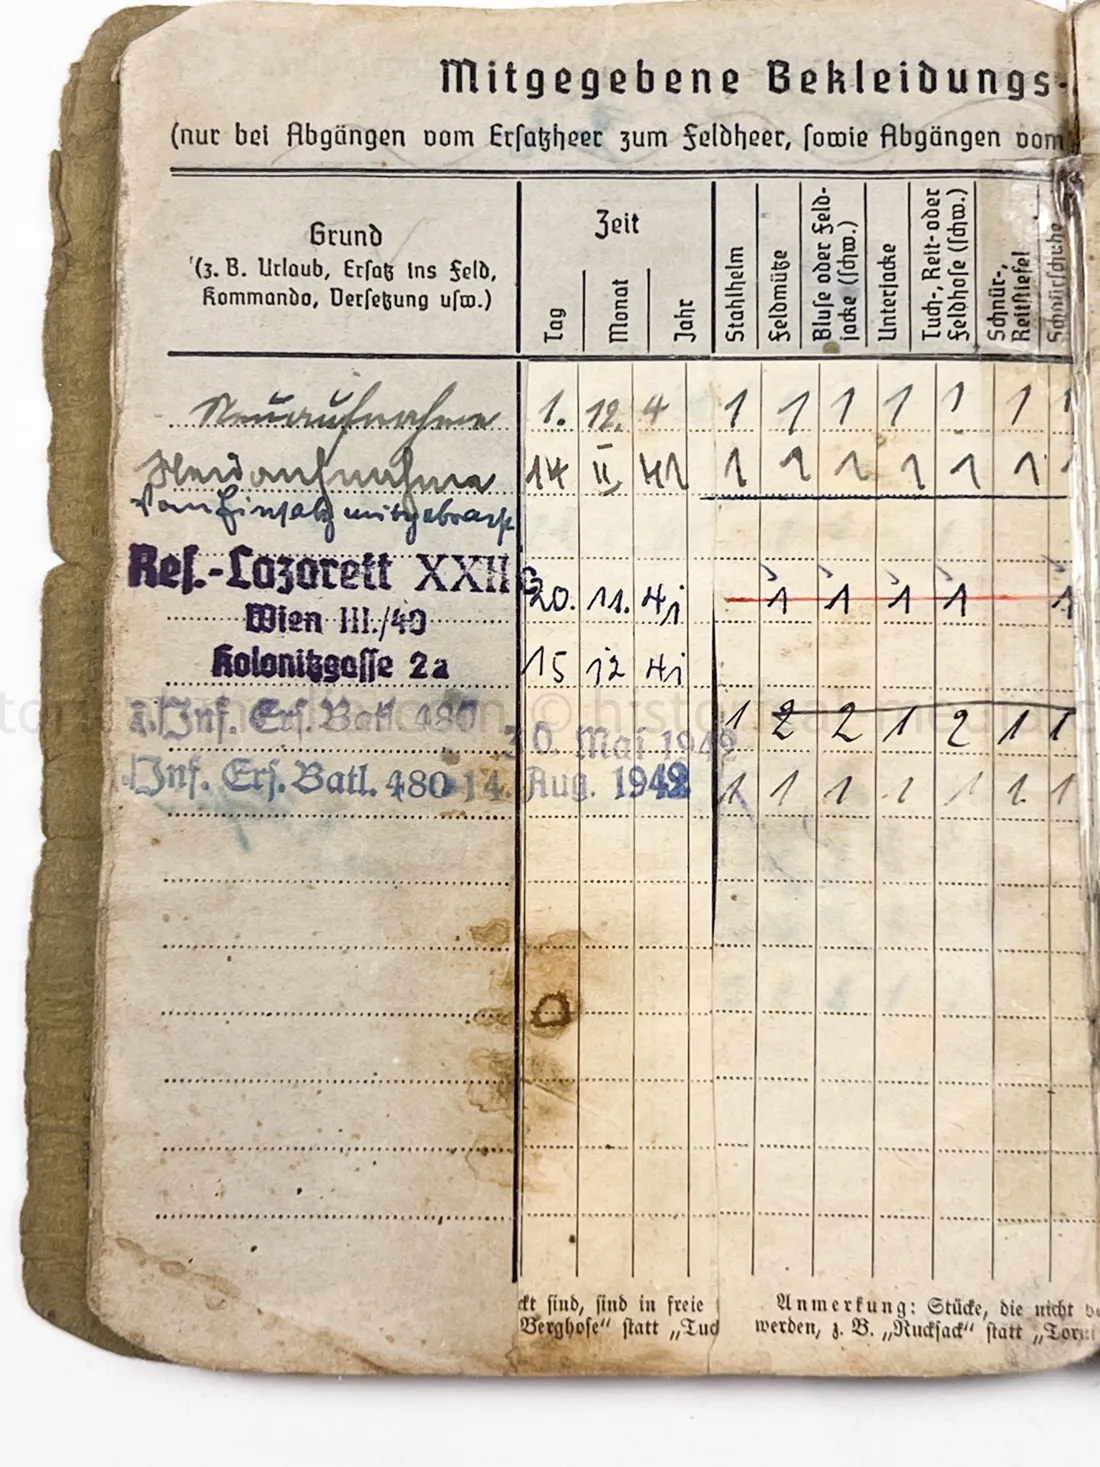 Mitgegebene Bekleidungs-
(nur bei Abgängen vom Ersatzheer zum Feldheer, sowie Abgängen vom
Grund
(z. B. Urlaub, Ersatz ins Feld,
Kommando, Versetzung usw.)
Zeit
Tag
Monat
Jahr
Stahlhelm
Feldmütze
Bluse oder Feld-
jacke (schw.)
Unterjacke
Tuch-, Reit- oder
Feldhose (schw.)
Schnür-,
Reitstiefel
Schnürschuhe
Neuaufnahme 1. 12. 4 1 1 1 1 1 1 1
14 II 41 1 1 1 1 1 1 1
Vom Einsatz mitgebracht
Res.-Lazarett XXII
20. 11. 41 1 1 1 1 1
Wien III./40
Kolonitzgasse 2a 15 12 41
Inf. Ers. Batl. 480 30. Mai 1942 1 2 2 1 2 1 1
Inf. Ers. Batl. 480 14. Aug. 1942 1 1 1 1 1 1. 1
ckt sind, sind in freie
Berghose" statt „Tuc
Anmerkung: Stücke, die nicht
werden, z. B. „Rucksack" statt „Torni